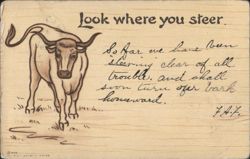 Look where you steer.
So far we have been
steering clear of all
trouble, and shall
soon turn our back
homeward.